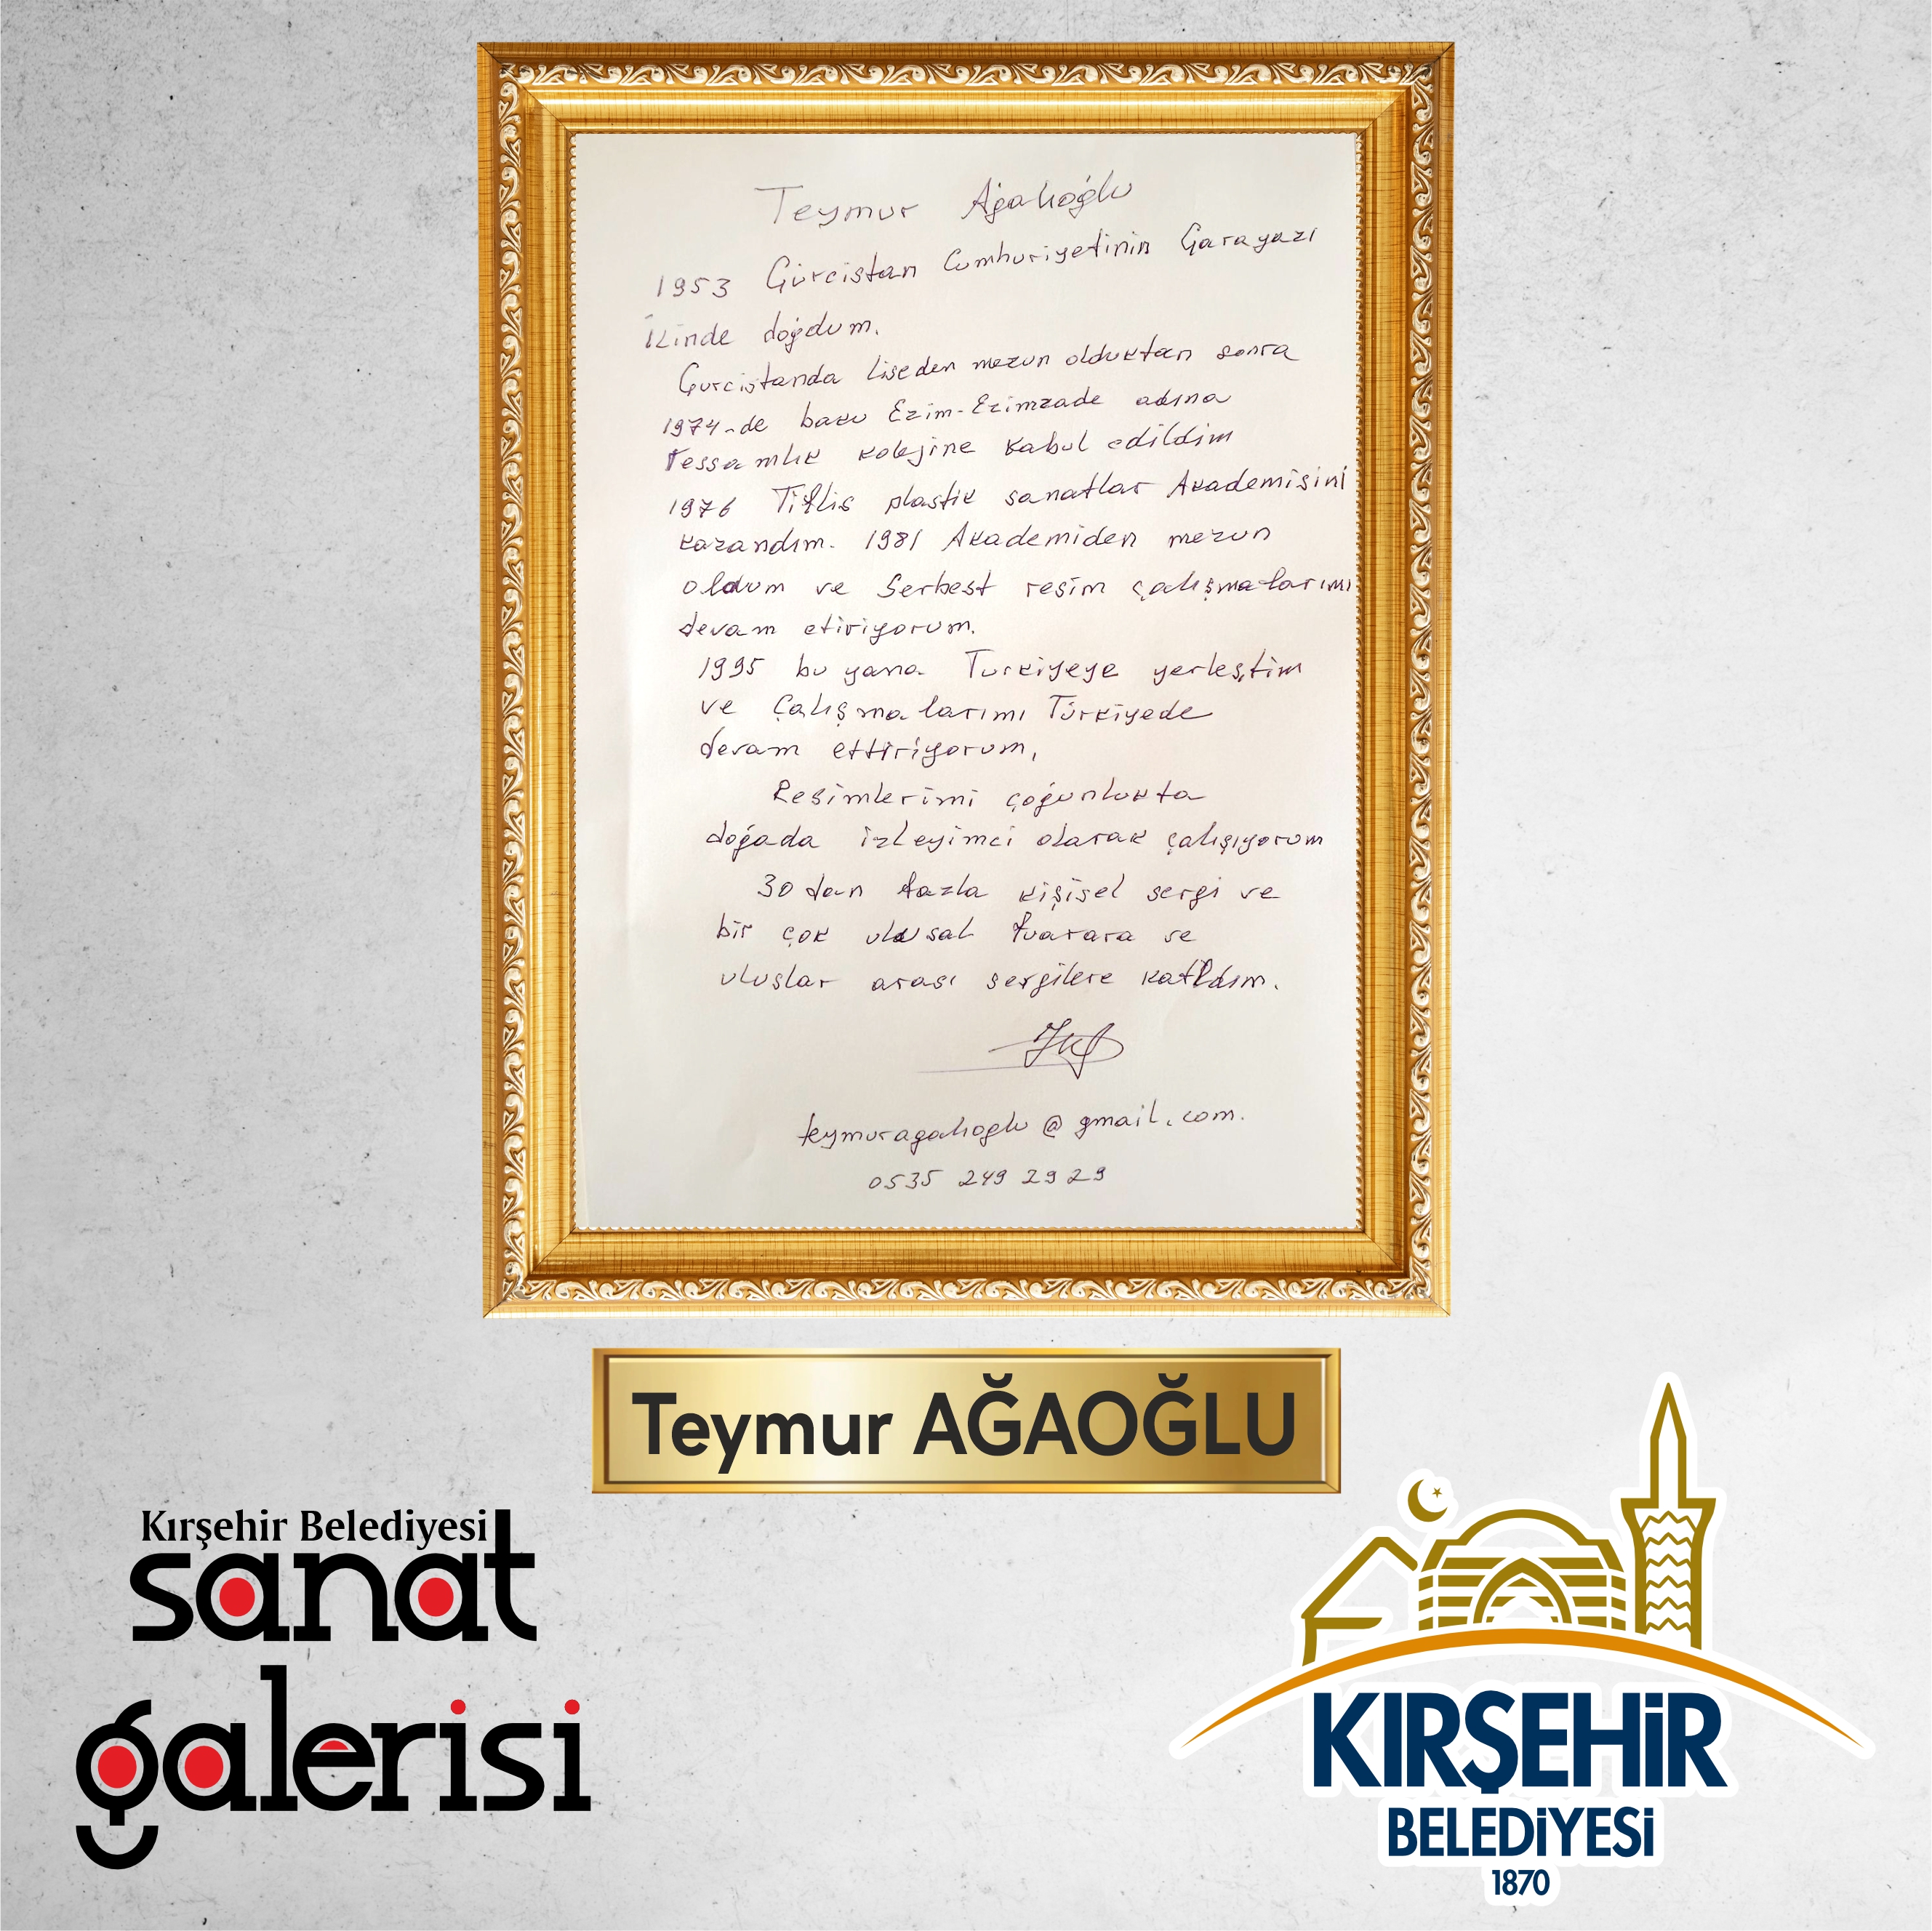 Teymur Ağalıoğlu
1953 Gürcistan Cumhuriyetinin Garayazı
İlinde doğdum.
Gurcistanda Liseden mezun olduktan sonra
1974-de baku Ezim-Ezimzade adına
ressamlık kolejine kabul edildim
1976 Tiflis plastik sanatlar Akademisini
kazandım. 1981 Akademiden mezun
oldum ve Serbest resim çalışmalarımı
devam etiriyorum.
1995 bu yana Turkiyeye yerleştim
ve Çalışmalarımı Türkiyede
devam ettiriyorum,
Resimlerimi çoğunlukta
doğada izleyimci olarak çalışıyorum
30 dan fazla kişisel sergi ve
bir çok ulusal fuarara ve
uluslar arası sergilere katıldım.
teymuragalioglu@gmail.com.
0535 249 2929
Teymur AĞAOĞLU
Kırşehir Belediyesi
sanat
galerisi
KIRŞEHİR
BELEDİYESİ
1870